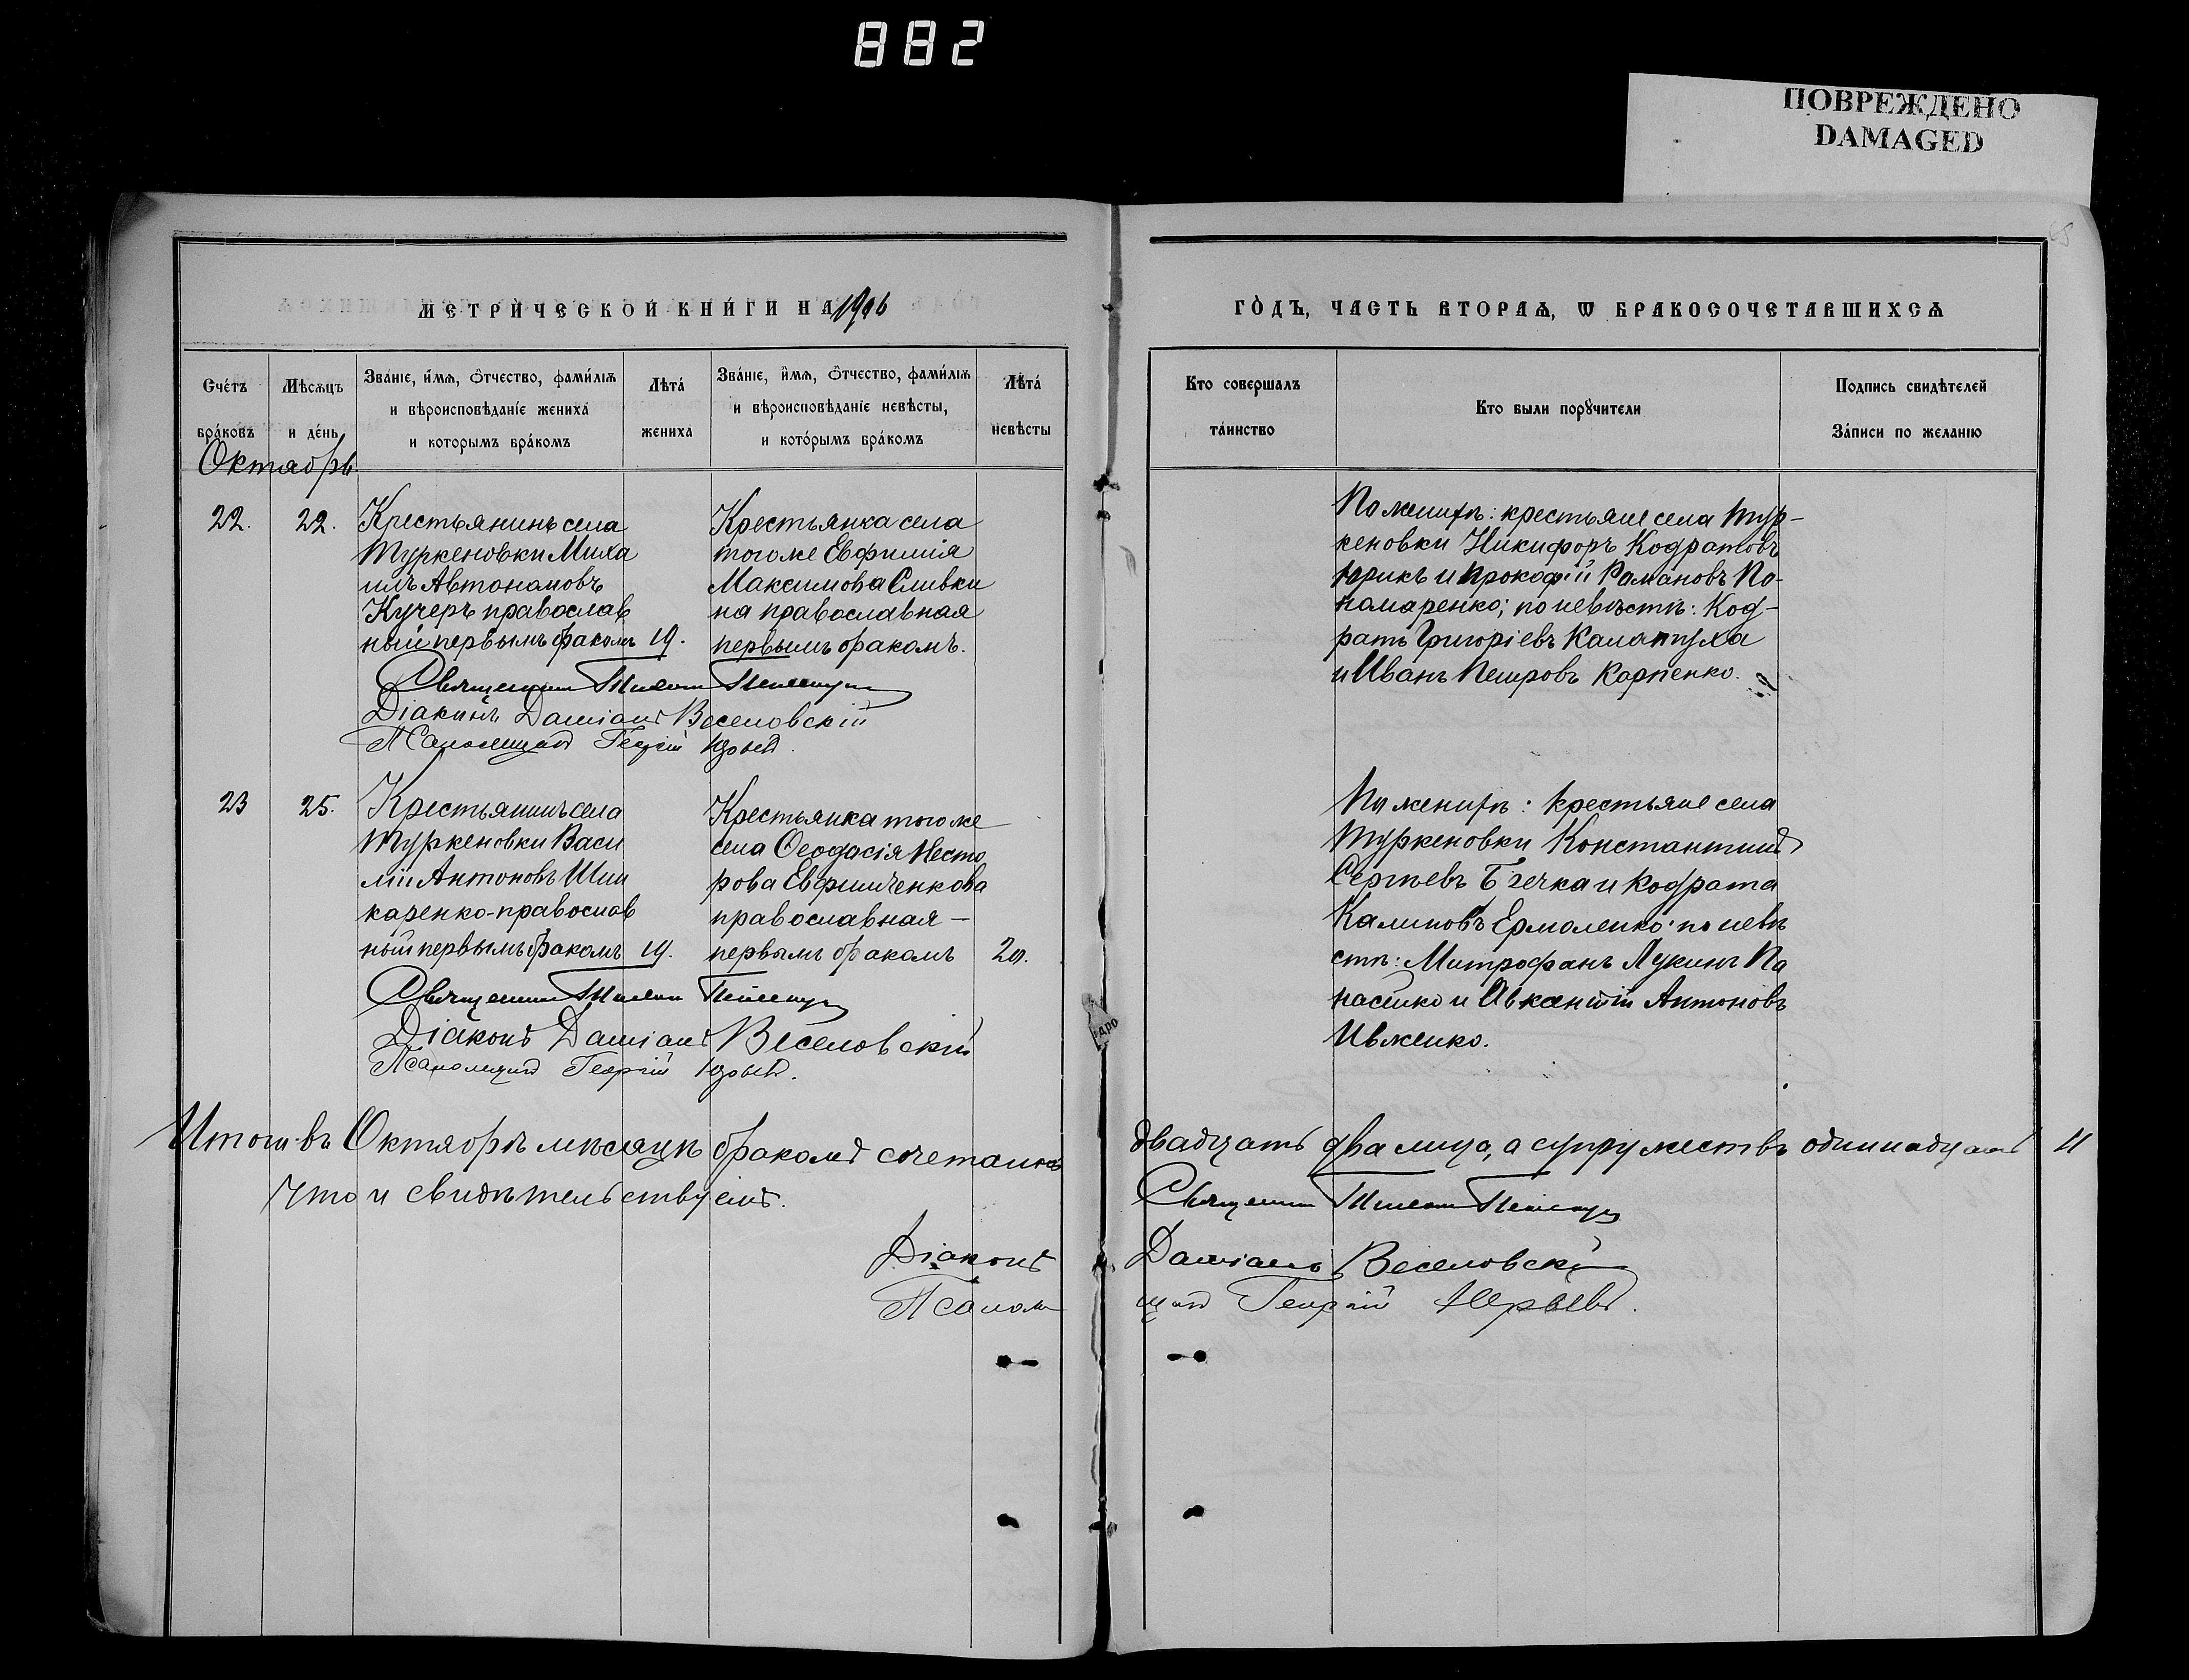 882
ПОВРЕЖДЕНО
DAMAGED
МЕТРИЧЕСКОЙ КНИГИ НА 1906
ГОДЪ, ЧАСТЬ ВТОРАѦ, Ѡ БРАКОСОЧЕТАВШИХСѦ
Счетъ браковъ
Мѣсѧцъ и день
Званіе, имѧ, отчество, фамиліѧ
и вѣроисповѣданіе жениха
и которымъ бракомъ
Лѣта
жениха
Званіе, имѧ, отчество, фамиліѧ
и вѣроисповѣданіе невѣсты,
и которымъ бракомъ
Лѣта
невѣсты
Кто совершалъ
таинство
Кто были поручители
Подпись свидѣтелей
Записи по желанію
Октябрь
22.
22.
Крестьянинъ села
Туркеновки Миха
илъ Автономовъ
Кучеръ православ
ный первымъ бракомъ
19.
Крестьянка села
того же Евфимія
Максимова Сливки
на православная
первымъ бракомъ.
По женихѣ: крестьяне села Тур-
кеновки Никифоръ Кодратовъ
Юрикъ и Прокофій Романовъ По-
номаренко; по невѣстѣ: Код-
ратъ Григоріевъ Калантуха
и Иванъ Петровъ Карпенко.
Священник
Діаконъ Даміанъ Веселовскій
Псаломщикъ Георгій
23
25.
Крестьянинъ села
Туркеновки Васи
лій Антоновъ Шин
каренко православ
ный первымъ бракомъ
19.
Крестьянка того же
села Ѳеодосія Несто
рова Евфимченкова
православная —
первымъ бракомъ
20.
По женихѣ: крестьяне села
Туркеновки Константинъ
Сергѣевъ и Кодрата
Калиновъ Ермоленко; по невѣ
стѣ: Митрофанъ Лукинъ Па
насенко и Антоновъ
Ивженко.
Священник
Діаконъ Даміанъ Веселовскій
Псаломщикъ Георгій
Итого въ Октябрѣ мѣсяцѣ бракомъ сочетанось двадцать два лица, а супружествъ одиннадцать 11
Что и свидѣтельствуемъ.
Священник
Діаконъ Даміанъ Веселовскій
Псаломщикъ Георгій Юрьевъ.